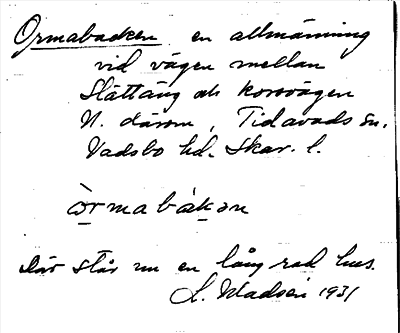 Ormabacken en allmänning
vid vägen mellan
Slättäng och korsvägen
N. därom, Tidavads sn.
Vadsbo hd. Skar. l.
òrmabákən
Där står nu en lång rad hus.
L. Madsén 1931